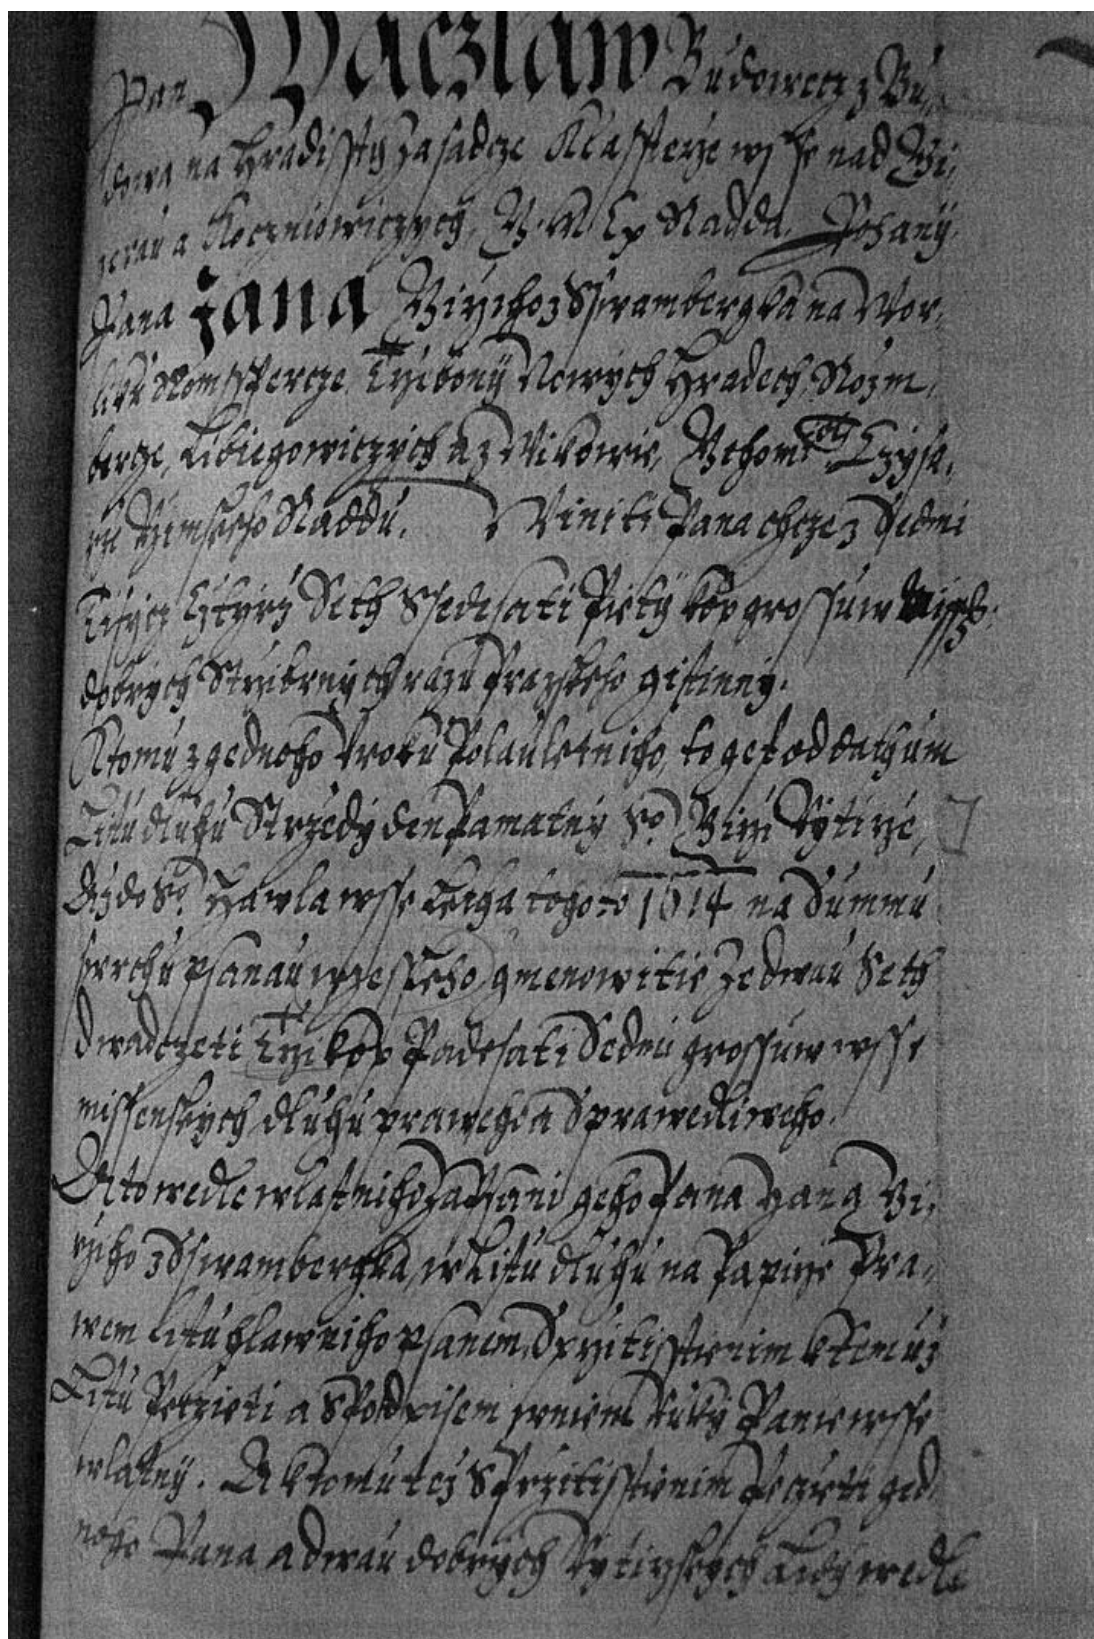 Pan Waczlaw Budowecz z Bu„
dowa na Hradissty Zasadcze Klassterze wsse nad Gi„
zerau a Koczniowiczych, Raddа. Pohany
Pana Jana Girzyho z Sswambergka na Wor„
liku Romsspercze Trzebony Nowych Hradech, Rozm„
bercze, Libiegowiczych a z Mikowic, Geho Mti Czysa„
rze Rzimskeho Raddu. Winiti Pana chcze z Sedmi
Tisycz Cztyrz Seth Ssedesati Pieti kop grossuw Missz:
dobrych Strzibrnych razu Prazskeho gistinny.
K tomu z gednoho Uroku Polauletniho, to gest od dathum
Listu dluhu Strzedy den Pamatny So. Girzi Rytirze,
Az do So. Hawla wsse Letha tohoto 1614 na Summu
swrchu psanau wzesskeho, gmenowitie ze dwau Seth
dwadczeti Trzi kop Padesati Sedmi grossuw wsse
missenskych dluhu praweho a Sprawedliweho.
A to wedle wlastniho Zapsani geho Pana Jana Gi„
rzyho z Sswambergka, w Listu dluhu na Papirze Pra„
wem listu hlawniho psanem, S przitisstienim k temuz
Listu Peczieti a S Podpisem w niem Ruky Panie wsse
wlastny. A k tomu tez S Przitisstienim Peczieti ged„
noho Pana a dwau dobrych Rytirzskych Lidy wedle